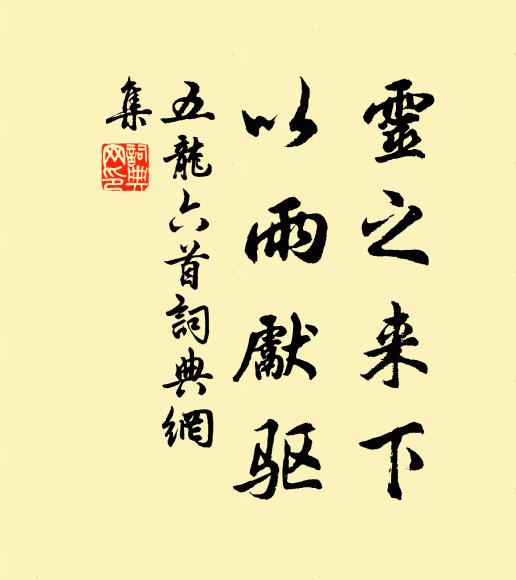 靈之来下
以雨獻驱
五龍六首詞典網
集
詞典
网印